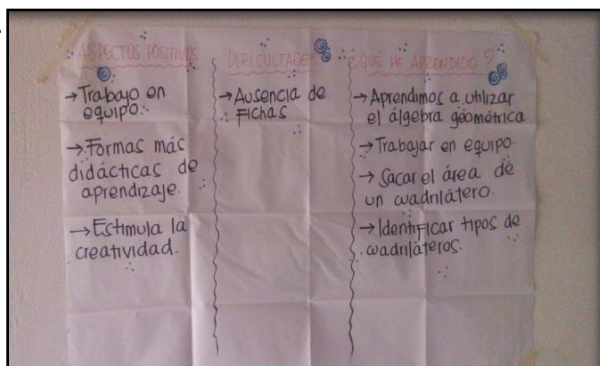 ASPECTOS POSITIVOS
→Trabajo en
equipo.
→Formas más
didácticas de
aprendizaje.
→Estimula la
creatividad.
DIFICULTADES
→Ausencia de
Fichas
¿QUÉ HE APRENDIDO?
→Aprendimos a utilizar
el álgebra geométrica
→Trabajar en equipo.
→Sacar el área de
un cuadrilátero.
→Identificar tipos de
cuadriláteros.